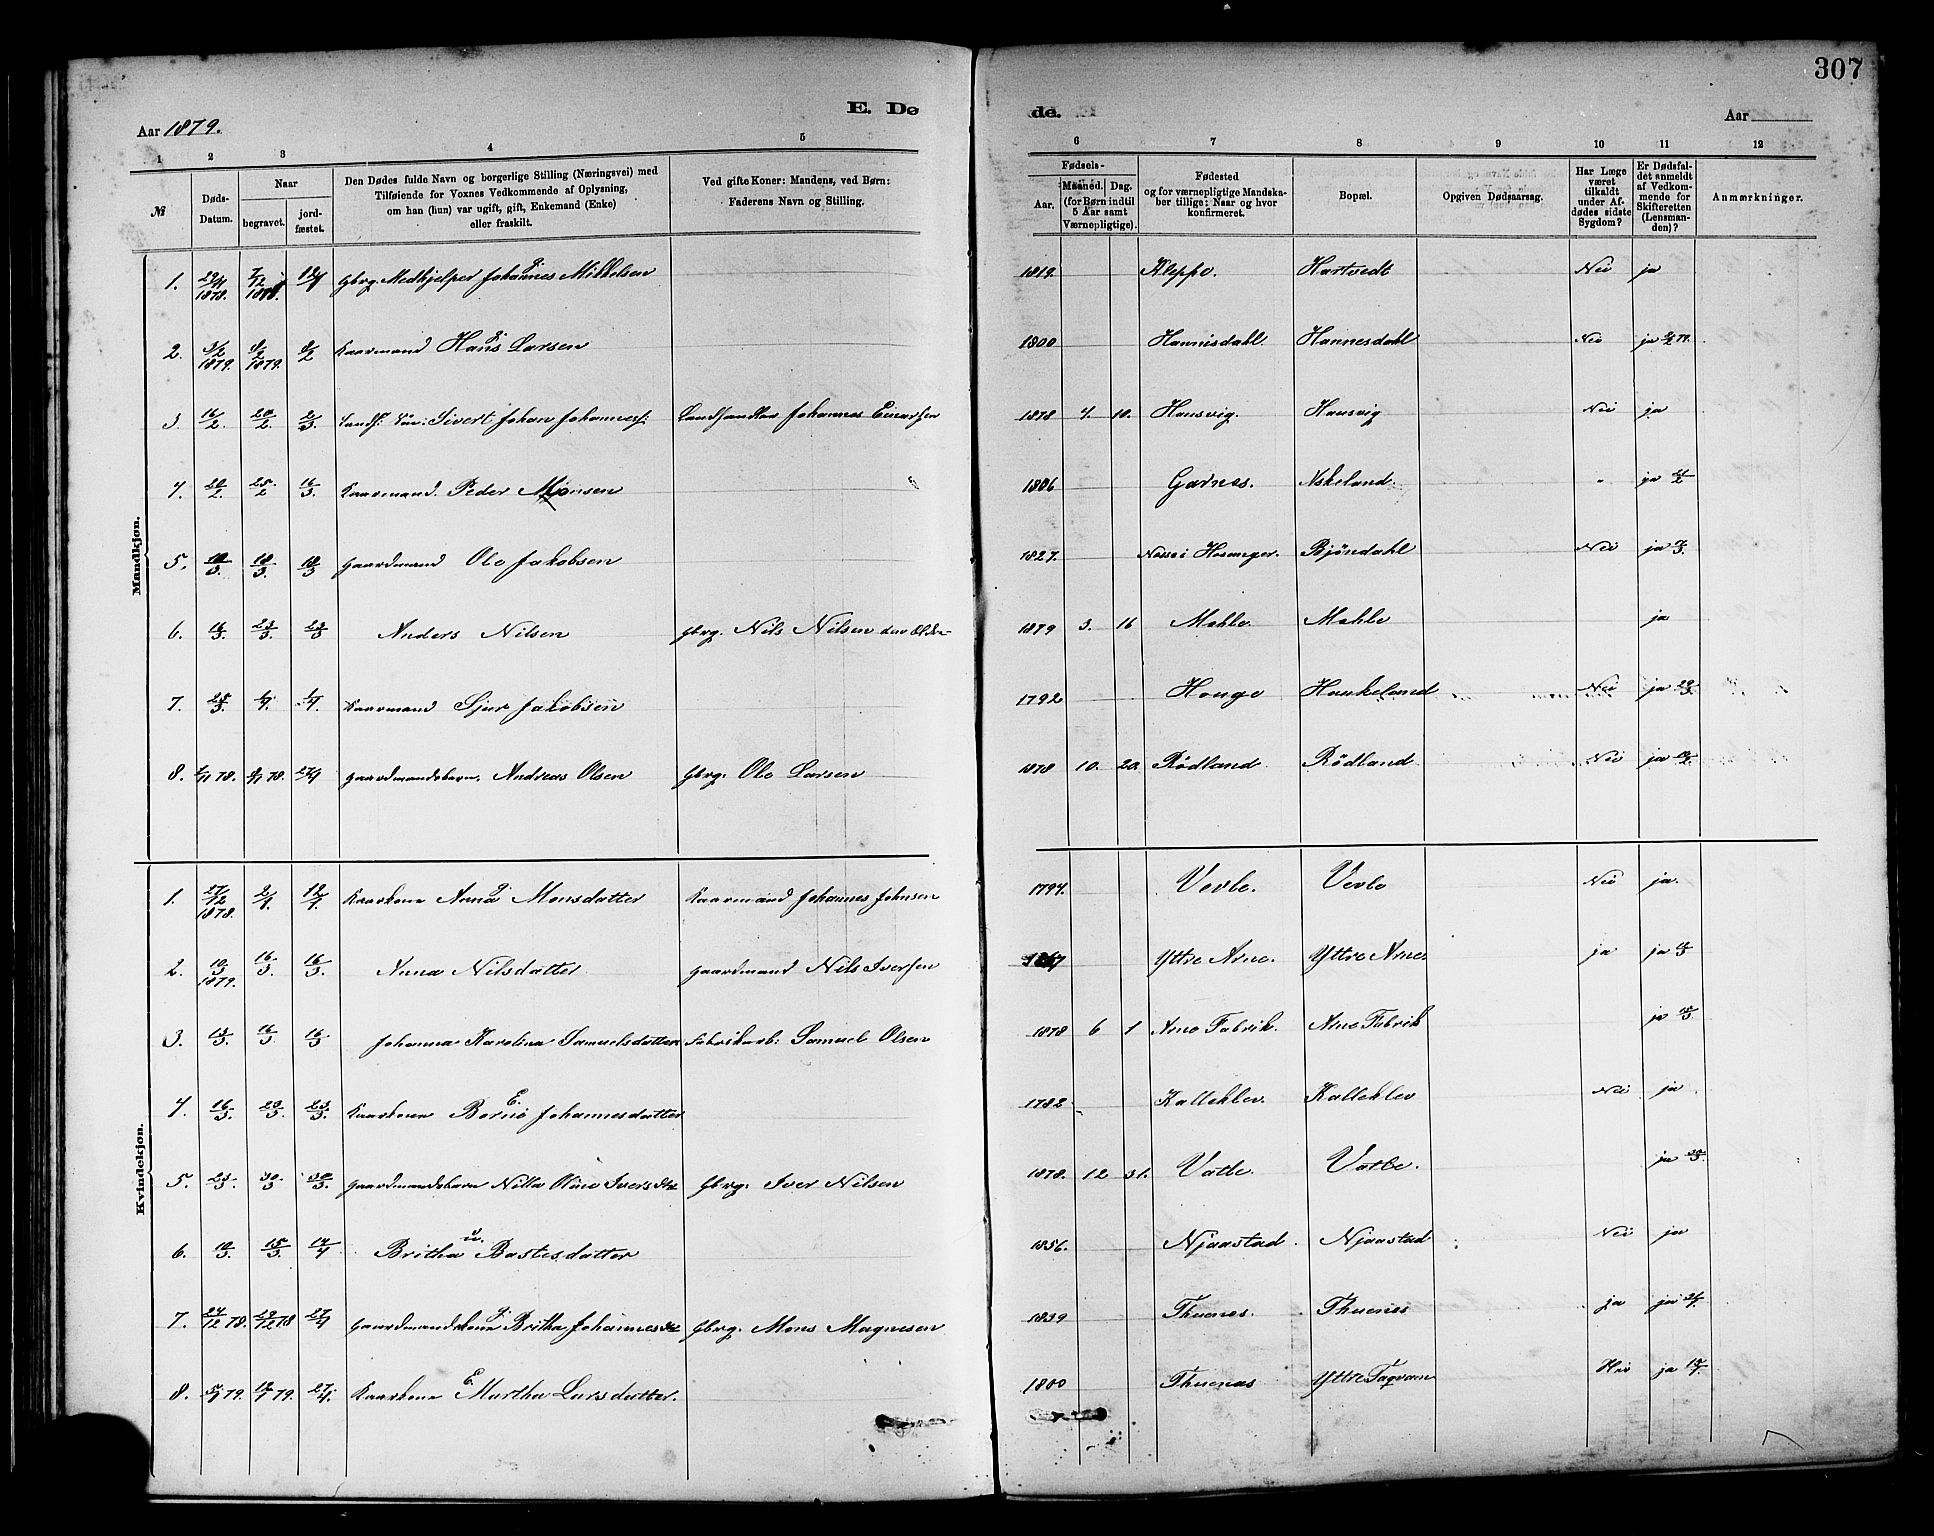 307
E. Døde.
Aar 1879.
Aar
1 2 3 4 5 6 7 8 9 10 11 12
№
Døds-Datum.
Naar
begravet.
jordfæstet.
Den Dødes fulde Navn og borgerlige Stilling (Næringsvei) med Tilføiende for Voxnes Vedkommende af Oplysning, om han (hun) var ugift, gift, Enkemand (Enke) eller fraskilt.
Ved gifte Koner: Mandens, ved Børn: Faderens Navn og Stilling.
Fødsels-
Aar.
Maaned. Dag.
(for Børn indtil 5 Aar samt Værnepligtige).
Fødested
og for værnepligtige Mandskaber tillige: Naar og hvor konfirmeret.
Bopæl.
Opgiven Dødsaarsag.
Har Læge været tilkaldt under Afdødes sidste Sygdom?
Er Dødsfaldet anmeldt af Vedkommende for Skifteretten (Lensmanden)?
Anmærkninger.
Mandkjøn.
1. 1878. 7/12 1878. Gbrg. Medhjelper Johannes Mikkelsen 1819. Kleppe. Hartvedt Nei ja
2. 3/2 1879. 8/2 1879. 8/2 Kaarmand Hans Larsen 1800 Hannisdahl. Hannesdahl Nei ja
3. 16/2. 20/2 2/3 Sivert Johan Johannes: Johannes Einarsen 1878 4. 10. Hausvig. Hausvig Nei ja
4. 20/2. 25/2 16/3 Kaarmand. Peder Monsen 1806 Garnes. ja
5. 10/3 18/3. 18/3 Gaardmand Ole Jakobsen 1827. Hosanger. Bjöndahl Nei ja
6. 16/3. 23/3. 23/3 Anders Nilsen Gbrg. Nils Nilsen den Ældre 1879 3. 16 Mehle. Mehle ja
7. 25/3. 1/4 1/4 Kaarmand Sjur Jakobsen 1792 Houge Haukeland Nei ja 29/3.
8. Gaardmandsbarn, Andreas Olsen Gbrg. Ole Larsen 1878 10. 20. Rödland Rödland Nei ja
Kvindekjøn.
1. 27/12 1878. 2/1. 12/1. Kaarkone Anna Monsdatter Kaarmand Johannes Johnsen 1794. Vevle. Vevle Nei ja.
2. 10/3 1879. 16/3. 16/3. Anna Nilsdatter Gaardmand Nils Iversen Yttre Arne. Yttre Arne ja ja
3. 13/3. 16/3 16/3 Johanna Karolina Samuelsdatter Fabrikarb: Samuel Olsen 1878 6 1 Arne Fabrik. Arne Fabrik ja
4. 16/3. 23/3. 23/3. Kaarkone E. Johannesdatter 1782 Kalleklev. Kalleklev Nei ja
5. 23/3. 30/3. 30/3. Gaardmandsbarn Iversdtr Gbrg. Iver Nilsen 1878. 12 31. Vatle. Vatle. ja 30/3.
6. 10/3. 15/3. Britha u. Bastesdatter 1856. Njaastad. Njaastad Nei ja
7. 24/12 78. 29/12 78 27/4 Gaardmandskone Britha Johannesdtr Gbrg. Mons Magnesen 1839 Thuenes. Thuenes ja ja
8. 79. 79. 27/4. Kaarkone E. Martha Larsdatter. 1800 Thuenes Yttre Taqvam Nei ja